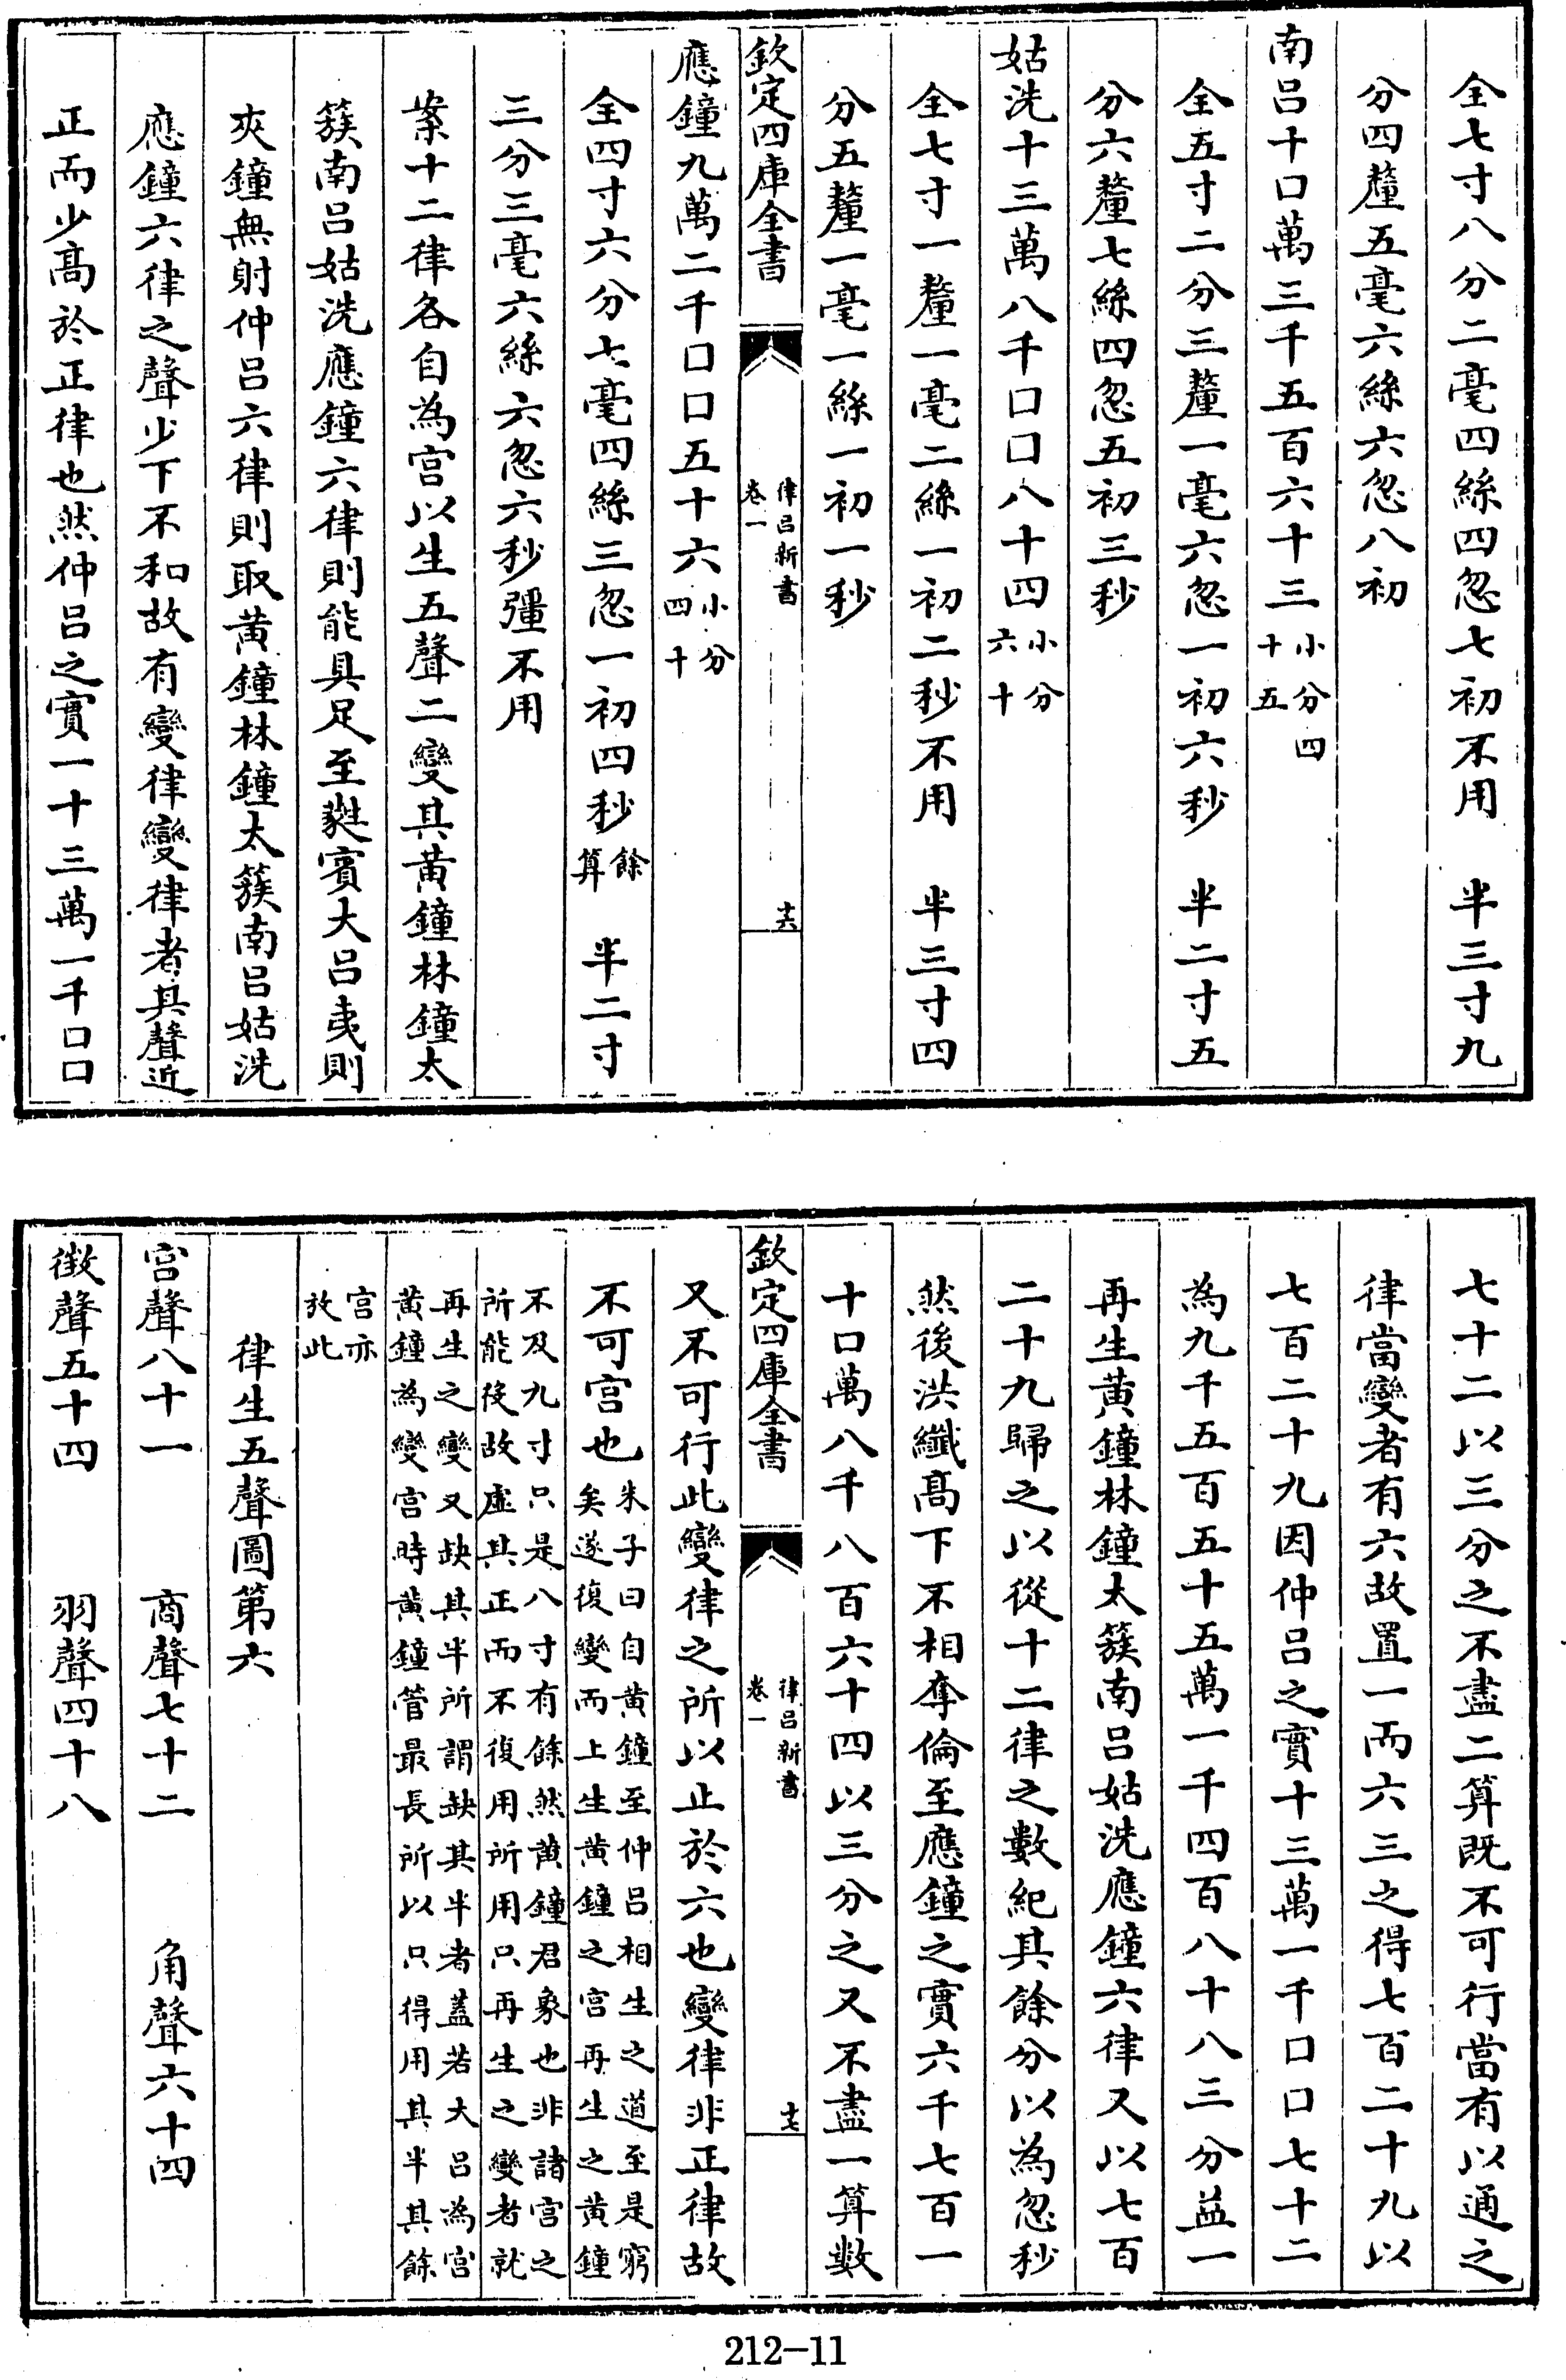 全七寸八分二毫四絲四忽七初不用　半三寸九
分四釐五毫六絲六忽八初
南呂十口萬三千五百六十三小分四十五
全五寸二分三釐一毫六忽一初六秒　半二寸五
分六釐七絲四忽五初三秒
姑洗十三萬八千口口八十四小分六十
全七寸一釐一毫二絲一初二秒不用　半三寸四
分五釐一毫一絲一初一秒
欽定四庫全書
律呂新書
卷一
十六
應鐘九萬二千口口五十六小分四十
全四寸六分七毫四絲三忽一初四秒餘算　半二寸
三分三毫六絲六忽六秒彊不用
案十二律各自為宫以生五聲二變其黃鐘林鐘太
簇南呂姑洗應鐘六律則能具足至蕤賓大呂夷則
夾鐘無射仲呂六律則取黃鐘林鐘太簇南呂姑洗
應鐘六律之聲少下不和故有變律變律者其聲近
正而少髙於正律也然仲呂之實一十三萬一千口口
七十二以三分之不盡二算既不可行當有以通之
律當變者有六故置一而六三之得七百二十九以
七百二十九因仲呂之實十三萬一千口口七十二
為九千五百五十五萬一千四百八十八三分益一
再生黃鐘林鐘太簇南呂姑洗應鐘六律又以七百
二十九歸之以從十二律之數紀其餘分以為忽秒
然後洪纖髙下不相奪倫至應鐘之實六千七百一
十口萬八千八百六十四以三分之又不盡一算數
欽定四庫全書
律呂新書
卷一
十七
又不可行此變律之所以止於六也變律非正律故
不可宫也朱子曰自黃鐘至仲呂相生之道至是窮
矣遂復變而上生黃鐘之宫再生之黃鐘
不及九寸只是八寸有餘然黃鐘君象也非諸宫之
所能役故虛其正而不復用所用只再生之變者就
再生之變又缺其半所謂缺其半者蓋若大呂為宫
黃鐘為變宫時黃鐘管最長所以只得用其半其餘
宫亦
放此
律生五聲圖第六
宫聲八十一　商聲七十二　角聲六十四
徵聲五十四　羽聲四十八
212-11